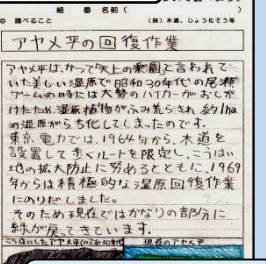 組 番 名前(
◎ 調べること (例)木道、じょうかそう等
アヤメ平の回復作業
アヤメ平は、かつて天上の楽園と言われて
いた美しい湿原で昭和30年代の尾瀬
ブームの時には大勢のハイカーがおしか
けたため、湿原植物がふみ荒らされ、約1ha
の湿原がらち化してしまったのです。
東京電力では、1964年から、木道を
設置して歩くルートを限定し、こうはい
地の拡大防止に努めるとともに、1969
年からは積極的な湿原回復作業
にのりだしました。
そのため現在ではかなりの部分に
緑が戻ってきています。
現在のアヤメ平